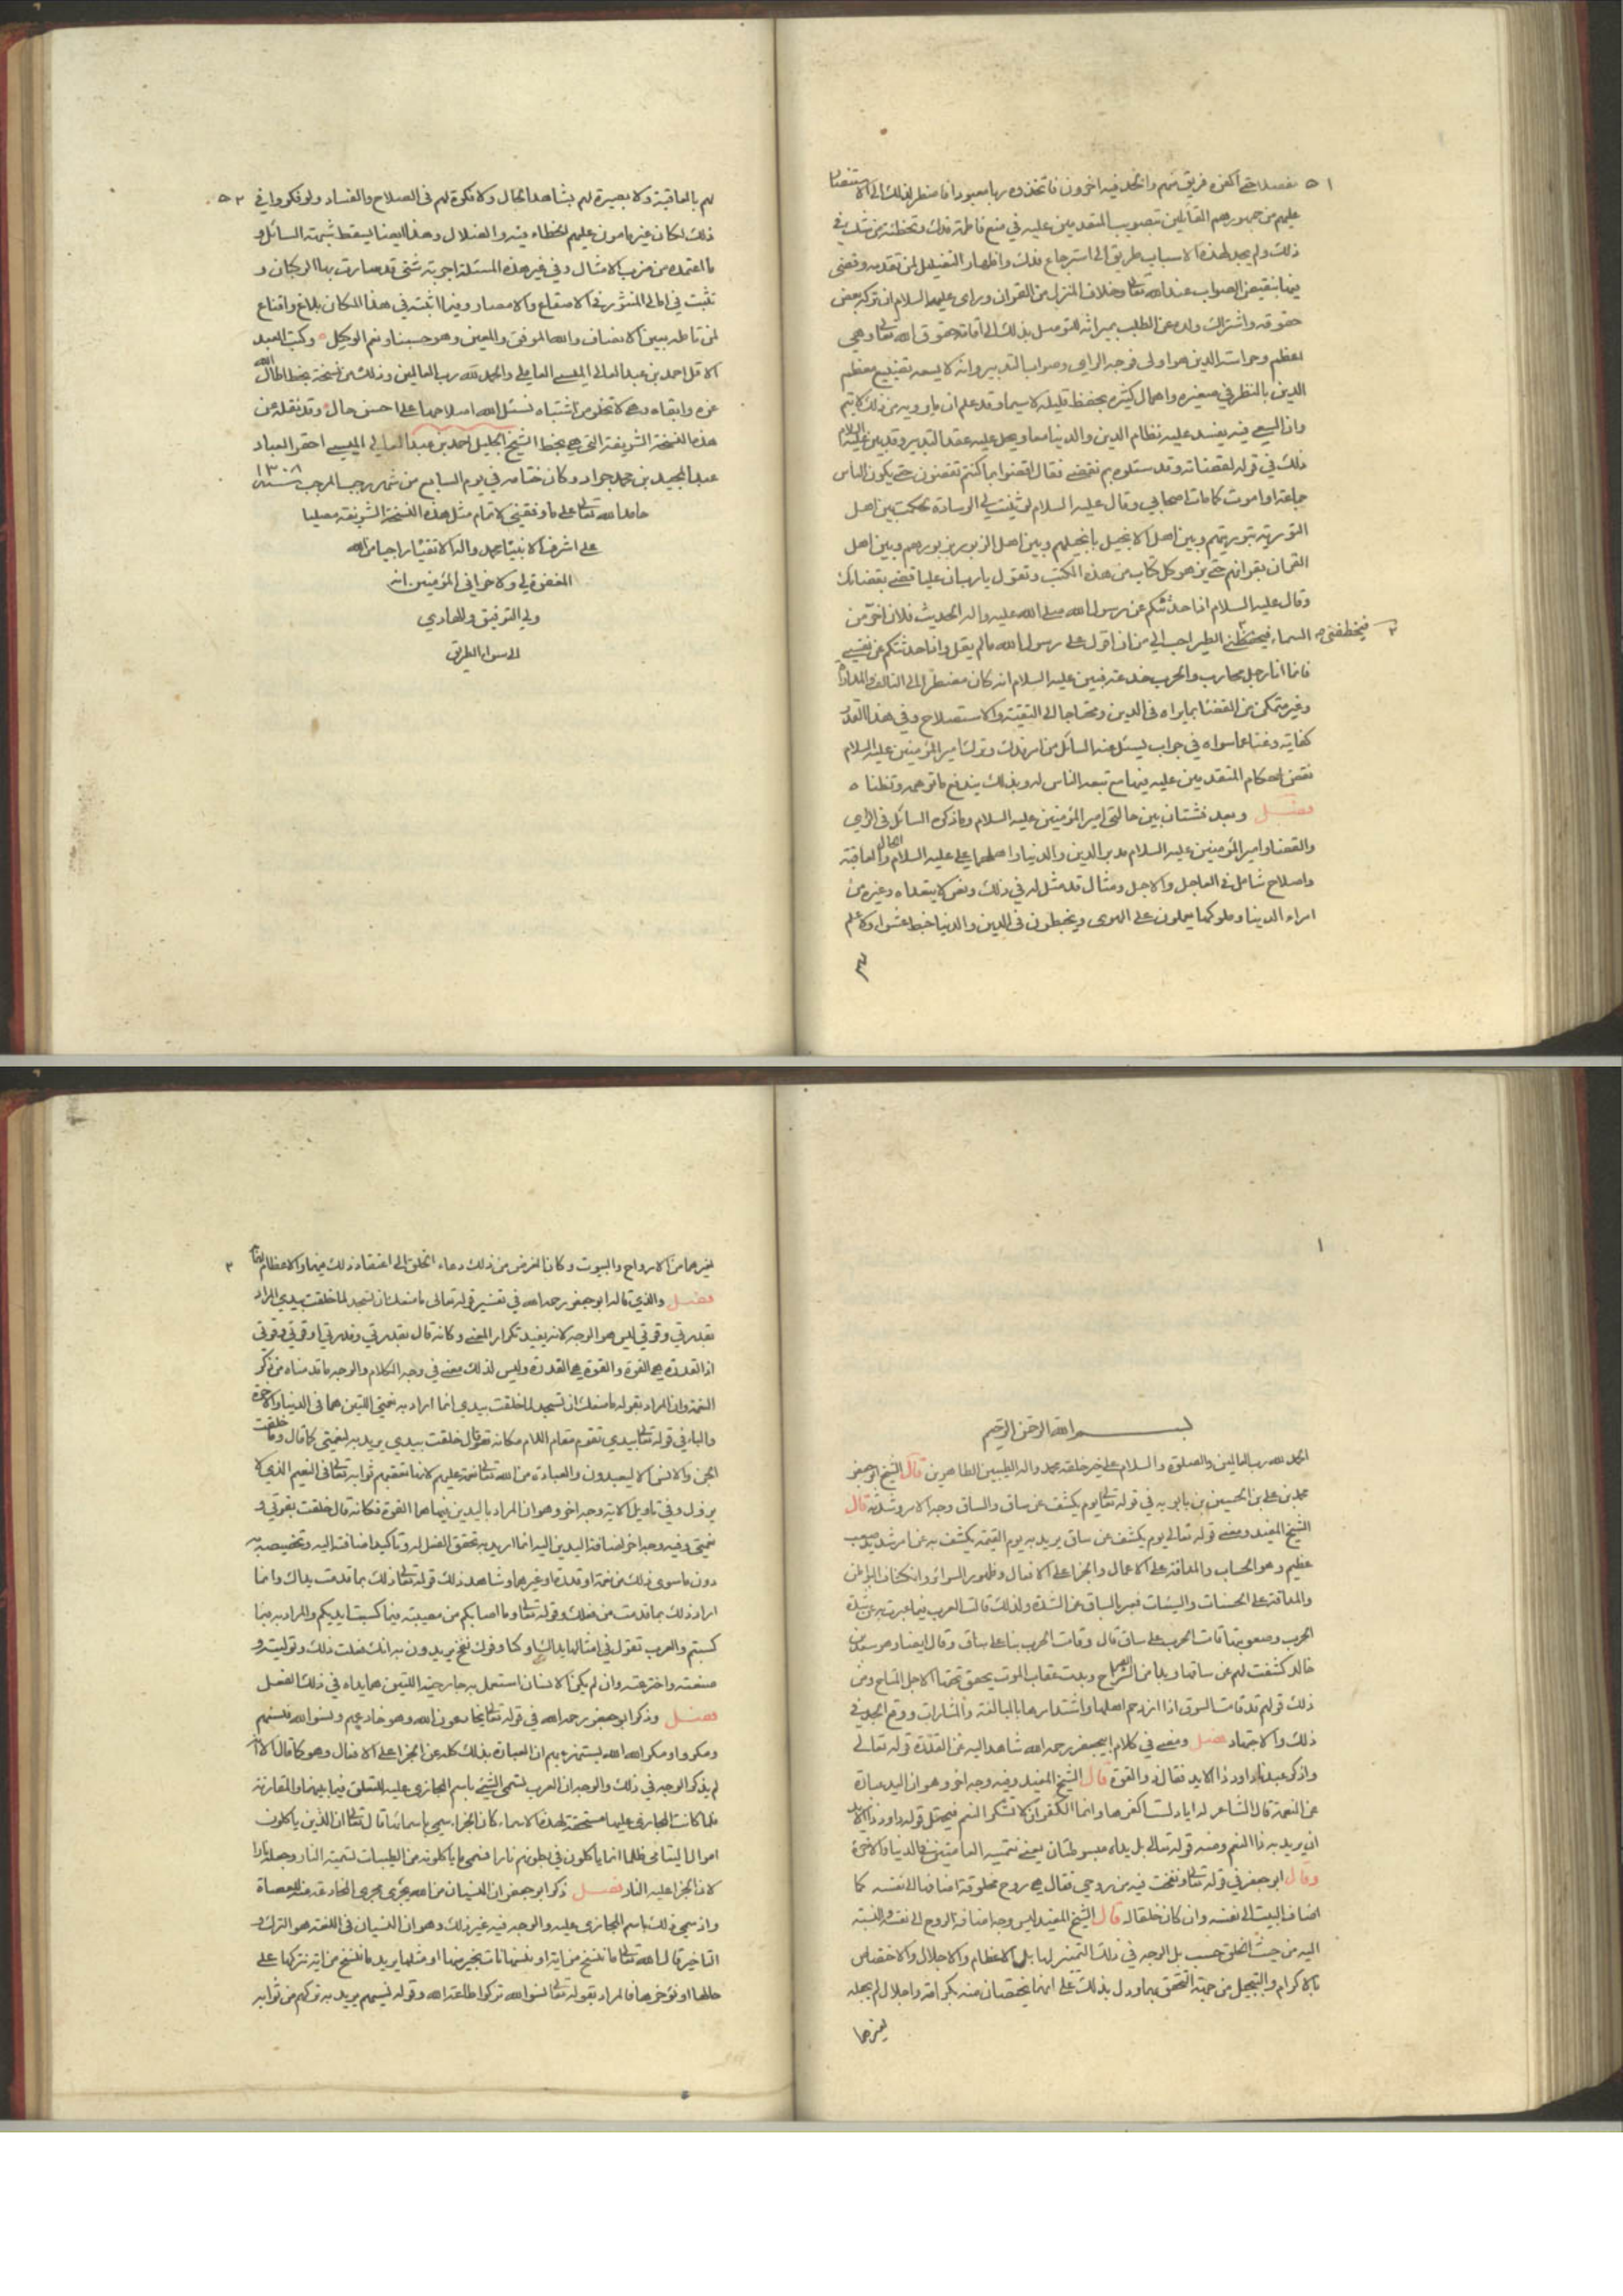 ٥١
علیهم من جمهورهم القائلین بتصویب المتقدمین علیه في منع فاطمة فدك وتخطئة من شك في
ذلك ولم یجد لهذه الاسباب طریق الی استرجاع فدك واظهار التفضیل لمن تقدمه وقضی
الدین بالنظر في صغیره واهمال كثیره بحفظ قلیله لاسیما وقد علم ان مایرویه من ذلك لا یتم
وان السعي فیه یفسد علیه نظام الدین والدنیا معا ویحل علیه عقد التدبیر وقد بین علیه السلام
ذلك في قوله لقضاته وقد سئلوه بم نقضي فقال اقضوا بما كنتم تقضون حتی یكون الناس
جماعة او اموت كما مات اصحابي وقال علیه السلام لو ثنیت لي الوسادة لحكمت بین اهل
التوریة بتوریتهم وبین اهل الانجیل بانجیلهم وبین اهل الزبور بزبورهم وبین اهل
القران بقرانهم حتی یزهر كل كتاب من هذه الكتب وتقول یا رب ان علیا قضی بقضائك
وقال علیه السلام اذا حدثتكم عن رسول الله صلی الله علیه واله الحدیث فلان اخر من
السماء فیخطفني الطیر احب الي من ان اقول علی رسول الله مالم یقل واذا حدثتكم عن نفسي
فیخطفني
فانما انا رجل محارب والحرب خدعة فبین علیه السلام انه كان مضطرا الی التالف والمداراة
وغیر متمكن من القضا بما یراه في الدین ومحتاجا الی التقیة والاستصلاح وفي هذا القدر
كفایة وغنا عما سواه في جواب لیسئل عنه السائل من امر فدك وترك امیر المؤمنین علیه السلام
نقض احكام المتقدمین علیه فیما مع تبعه الناس له وبذلك یندفع ما توهمه وتظناه
فصل وبعد فشتان بین حالتي امیر المؤمنین علیه السلام وما ذكره السائل في الراي
والقضا وامیر المؤمنین علیه السلام مدبر الدین والدنیا واصلهما علی علیه السلام الحال والعاقبة
واصلاح شامل في العاجل والاجل ومثال قد مثل له في ذلك ونص لا یتعداه وغیره من
امراء الدنیا وملوكها یعملون علی الهوی ویخبطون في الدین والدنیا خبط عشواء ولا علم
٥٢
لهم بالعاقبة ولا بصیرة لهم بشاهد الحال ولا فكرة لهم في الصلاح والفساد ولو فكروا في
ذلك لكان غیر مامون علیهم الخطاء فیه والضلال وهذا ایضا یسقط شبهة السائل و
ما اعتمده من ضرب الامثال وفي غیر هذه المسئلة اجوبة شتی قد سارت بها الركبان و
تثبت في امالي المنثورة في الاصقاع والامصار وفیما اثبته في هذا المكان بلاغ واقناع
لمن تامله بعین الانصاف والله الموفق والمعین وهو حسبنا ونعم الوكیل وكتب العبد
الاقل احمد بن عبد العالي المیسي العاملي والحمد لله رب العالمین وذلك من نسخة بخط اطال الله
عزه وابقاه وهی لا تخلو من اشتباه نسئل الله اصلاحها علی احسن حال وقد نقله عن
هذه النسخة الشریفة التي هی بخط الشیخ الجلیل احمد بن عبد العالي المیسي احقر العباد
عبد المجید بن محمد جواد وكان ختامه في یوم السابع من شهر رجب المرجب سنة ١٣٠٨
حامدا لله تعالی علی ما وفقني لاتمام مثل هذه النسخة الشریفة مصلیا
علی اشرف الانبیاء محمد واله الاتقیاء راجیا من الله
المغفرة لي ولاخواني المؤمنین انه
ولي التوفیق والهادي
الی سواء الطریق
١
بسم الله الرحمن الرحیم
الحمد لله رب العالمین والصلوة والسلام علی خیر خلقه محمد واله الطیبین الطاهرین قال الشیخ ابو جعفر
محمد بن علي بن الحسین بن بابویه في قوله تعالی یوم یكشف عن ساق والساق وجه الامر وشدته قال
الشیخ المفید ومعنی قوله تعالی یوم یكشف عن ساق یرید به یوم القیمة یكشف به عن امر شدید صعب
عظیم وهو الحساب والمداقة علی الاعمال والجزا علی الافعال وظهور السرائر وانكشاف البواطن
والمداقة علی الحسنات والسیئات فعبر بالساق عن الشدة ولذلك قالت العرب فیما عبرت به عن شدة
الحرب وصعوبتها قامت الحرب علی ساق قال وقامت الحرب بنا علی ساق وقال ایضا وهو سعد بن
خالد كشفت لهم عن ساقها وبدا من الشر الصراح وبدت عقاب الموت یخفق تحتها الاجل المتاح ومن
ذلك قولهم قد قامت السوق اذا ازدحم اهلها واشتد امرها بالمبالغة والمشارات ووقع الجد في
ذلك والاجتهاد فصل ومضی في كلام ابي جعفر رحمه الله شاهدا لید عن القدرة قوله تعالی
واذكر عبدنا داود ذا الاید فقال ذو القوة قال الشیخ المفید وفیه وجه اخر وهو ان الید عبارة
عن النعمة قال الشاعر له ایاد لست اكفرها وانما الكفر ان لا تشكر النعم فیحتمل قوله داود ذا الاید
ان یرید به ذا النعم ومنه قوله تعالی بل یداه مبسوطتان یعني نعمتیه العامتین في الدنیا والاخرة
وقال ابو جعفر في قوله تعالی ونفخت فیه من روحي فقال هی روح مخلوقة اضافها الی نفسه كما
اضاف البیت الی نفسه وان كان خلقا له قال الشیخ المفید لیس وجه اضافة الروح الی نفسه والنسبة
الیه من حیث الخلق حسب بل الوجه في ذلك التمییز لها بالاعظام والاجلال والاختصاص
بالاكرام والتبجیل من جهة التحقق بهما ودل بذلك علی انهما یختصان منه بكرامة واجلال لم یجعله
لغیرهما
٢
لغیرهما من الارواح والبیوت وكان الغرض من ذلك دعاء الخلق الی اعتقاد ذلك فیهما والاعظام لهما
فصل والذي قاله ابو جعفر رحمه الله في تفسیر قوله تعالی ما منعك ان تسجد لما خلقت بیدي المراد
بقدرتي وقوتي لیس هو الوجه لانه یفید تكرار المعنی وكانه قال بقدرتي وقدرتي او قوتي وقوتي
اذ القدرة هی القوة والقوة هی القدرة ولیس لذلك معنی في وجه الكلام والوجه ما قدمناه من ذكر
النعمة وان المراد بقوله ما منعك ان تسجد لما خلقت بیدي انما اراد به نعمتي اللتین هما في الدنیا والاخرة
والباء في قوله تعالی بیدي تقوم مقام اللام فكانه تعالی قال خلقت بیدي یرید به لنعمتي كما قال وما خلقت
الجن والانس الا لیعبدون والعبادة من الله تعالی نعمة علیهم لانها تعقبهم ثوابه تعالی في النعیم الذي لا
یزول وفي تاویل الایة وجه اخر وهو ان المراد بالیدین فیهما هما القوة فكانه قال خلقت بقوتي و
نعمتي وفیه وجه اخر اضافة الیدین الیه انما ارید به تحقق الفعل له وتاكید اضافته الیه وتخصیصه به
دون ما سوی ذلك من نعمة او قدرة او غیرهما وشاهد ذلك قوله تعالی ذلك بما قدمت یداك وانما
اراد ذلك بما قدمت من فعلك وقوله تعالی وما اصابكم من مصیبة فبما كسبت ایدیكم والمراد به فبما
كسبتم والعرب تقول في امثالها یداك اوكتا وفوك نفخ یریدون به انك فعلت ذلك وتولیته و
صنعته واخترعته وان لم یكن الانسان استعمل به جارحتیه اللتین هما یداه في ذلك الفعل
فصل وذكر ابو جعفر رحمه الله في قوله تعالی یخادعون الله وهو خادعهم ونسوا الله فنسیهم
ومكروا ومكر الله الله یستهزء بهم ان العبارة بذلك كله عن الجزا علی الافعال وهو كما قال الا انه
لم یذكر الوجه في ذلك والوجه ان العرب تسمي الشیئ باسم المجازی علیه للتعلق فیما بینهما والمقارنة
فلما كانت المجازی علیها مستحقة لهذه الاسماء كان الجزاء یسمی باسمائها قال تعالی ان الذین یاكلون
اموال الیتامی ظلما انما یاكلون في بطونهم نارا فسمی ما یاكلونه من الطیبات لتسمیة النار وجعله نارا
لان الجزا علیه النار فصل ذكر ابو جعفر ان النسیان من الله یجری مجری المخادعة منه للعصاة
واذ سمي ذلك باسم المجازی علیه والوجه فیه غیر ذلك وهو ان النسیان في اللغة هو الترك و
التاخیر قال الله تعالی ما ننسخ من ایة او ننسها نات بخیر منها او مثلها یرید ما ننسخ من ایة نتركها علی
حالها او نؤخرها فالمراد بقوله تعالی نسوا الله تركوا طاعة الله وقوله فنسیهم یرید به تركهم من ثوابه